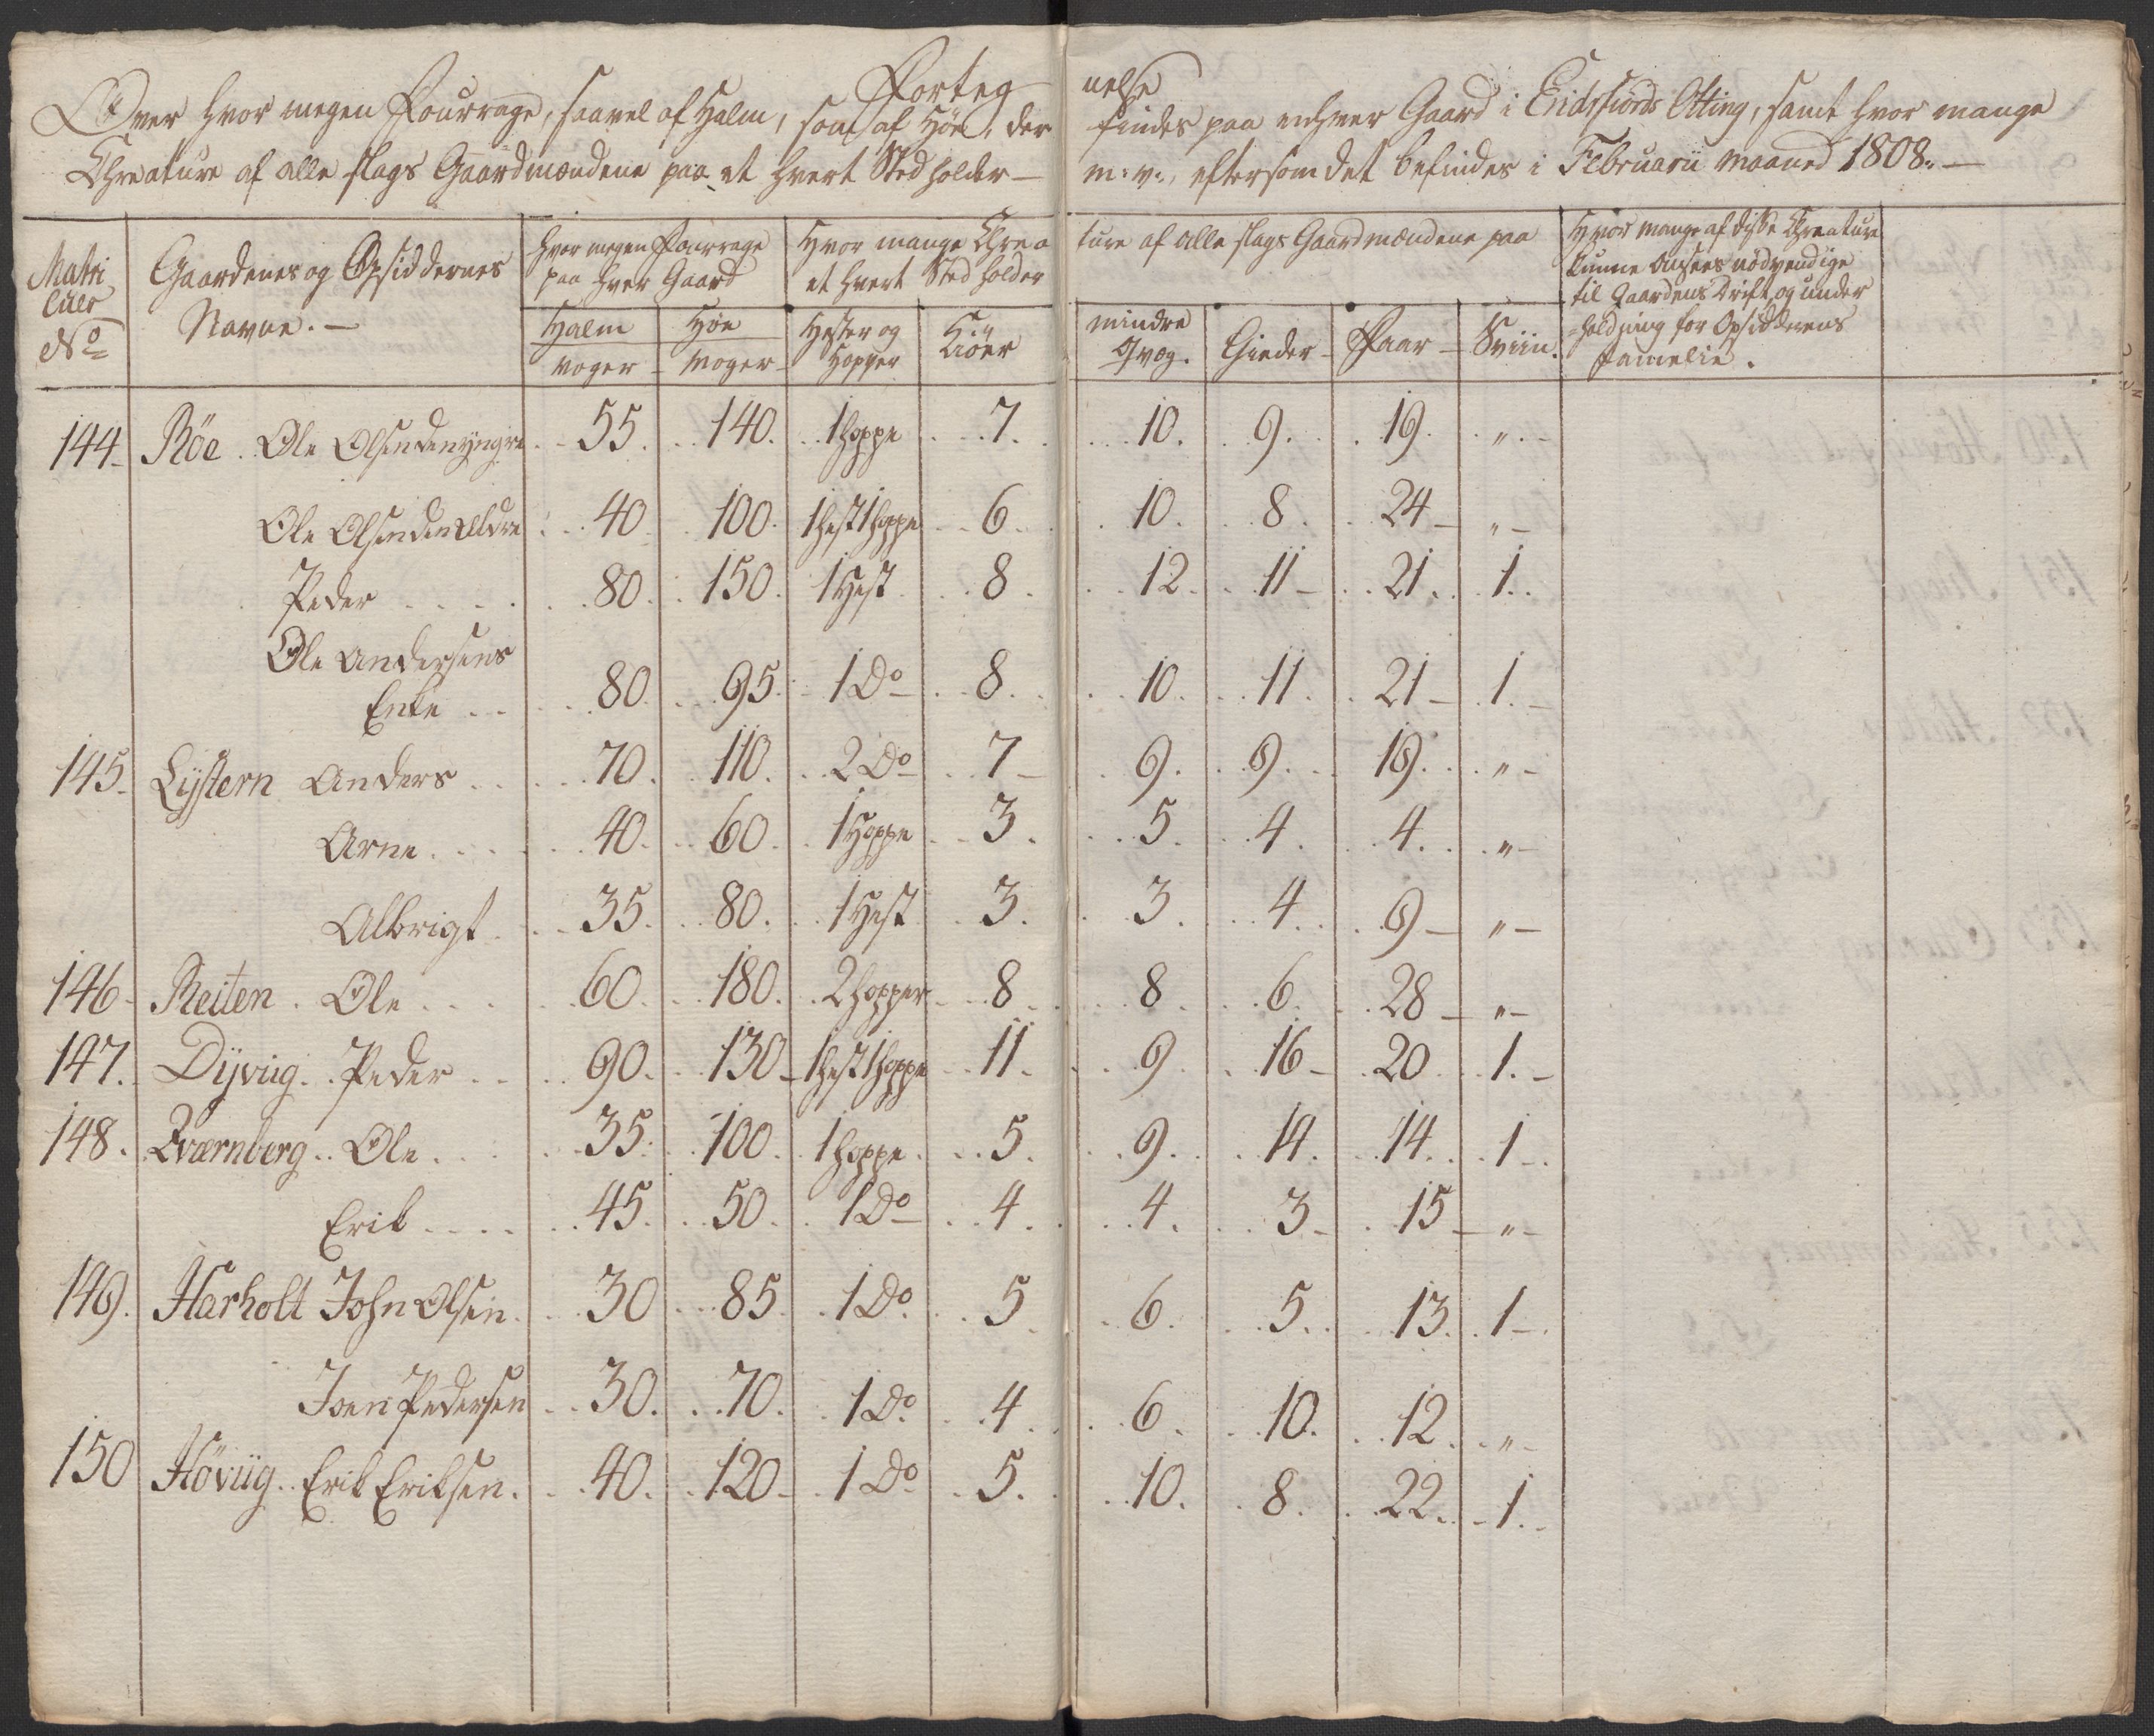 Forteg nelse
Over hvor megen Fourrage, saavel af Halm, som af Höe, der findes paa enhver Gaard i Eidsfiords Otting, samt hvor mange
Chreature af alle slags Gaardmændene paa et hvert Sted holder — m: v:, eftersom det befindes i Februarii Maaned 1808. —
Matri culs No | Gaardenes og Opsiddernes Navne. — | Hvor megen Fourrage paa hver Gaard | Hvor mange Chrea ture af alle slags Gaardmændene paa et hvert Sted holder | Hvor mange af disse Chreature kunne ansees nödvendige til Gaardens Drift, og under holdning for Opsidderens Familie.
Halm Voger | Höe Voger | Hester og Hopper | Kiöer | mindre Qvæg. | Gieder | Faar | Sviin.
144 Röe . Ole Olsen den yngre 55. 140. 1 hoppe 7. 10. 9. 19. „ -
Ole Olsen den Ældre 40 100. 1 hest 1 hoppe 6. 10. 8. 24 „ -
Peder 80. 150. 1 Hest 8. 12. 11 21. 1.
Ole Andersens
Enke 80. 95. 1 Do 8. 10. 11. 21 1.
145. Lystern Anders 70. 110. 2 Do 7 9. 9. 19. „ -
Arne 40. 60. 1 Hoppe 3. 5. 4. 4. „ -
Albrigt 35. 80. 1 Hest 3. 3. 4. 9 „ -
146 Reiten . Ole 60. 180. 2 hopper 8 8 6. 28 „ -
147. Dyviig . Peder 90. 130 1 hest 1 hoppe 11. 9 16 20 1.
148. Qværnberg . Ole 35. 100. 1 hoppe 5. 9. 14. 14. 1
Erik 45. 50. 1 Do 4. 4. 3 15 „ -
149. Harholt John Olsen. 30 85. 1 Do 5 6. 5. 13. 1
Joen Pedersen 30. 70. 1 Do 4 6 10. 12. „
150 Höviig . Erik Eriksen. 40. 120 1 Do 5. 10. 8. 22. 1.